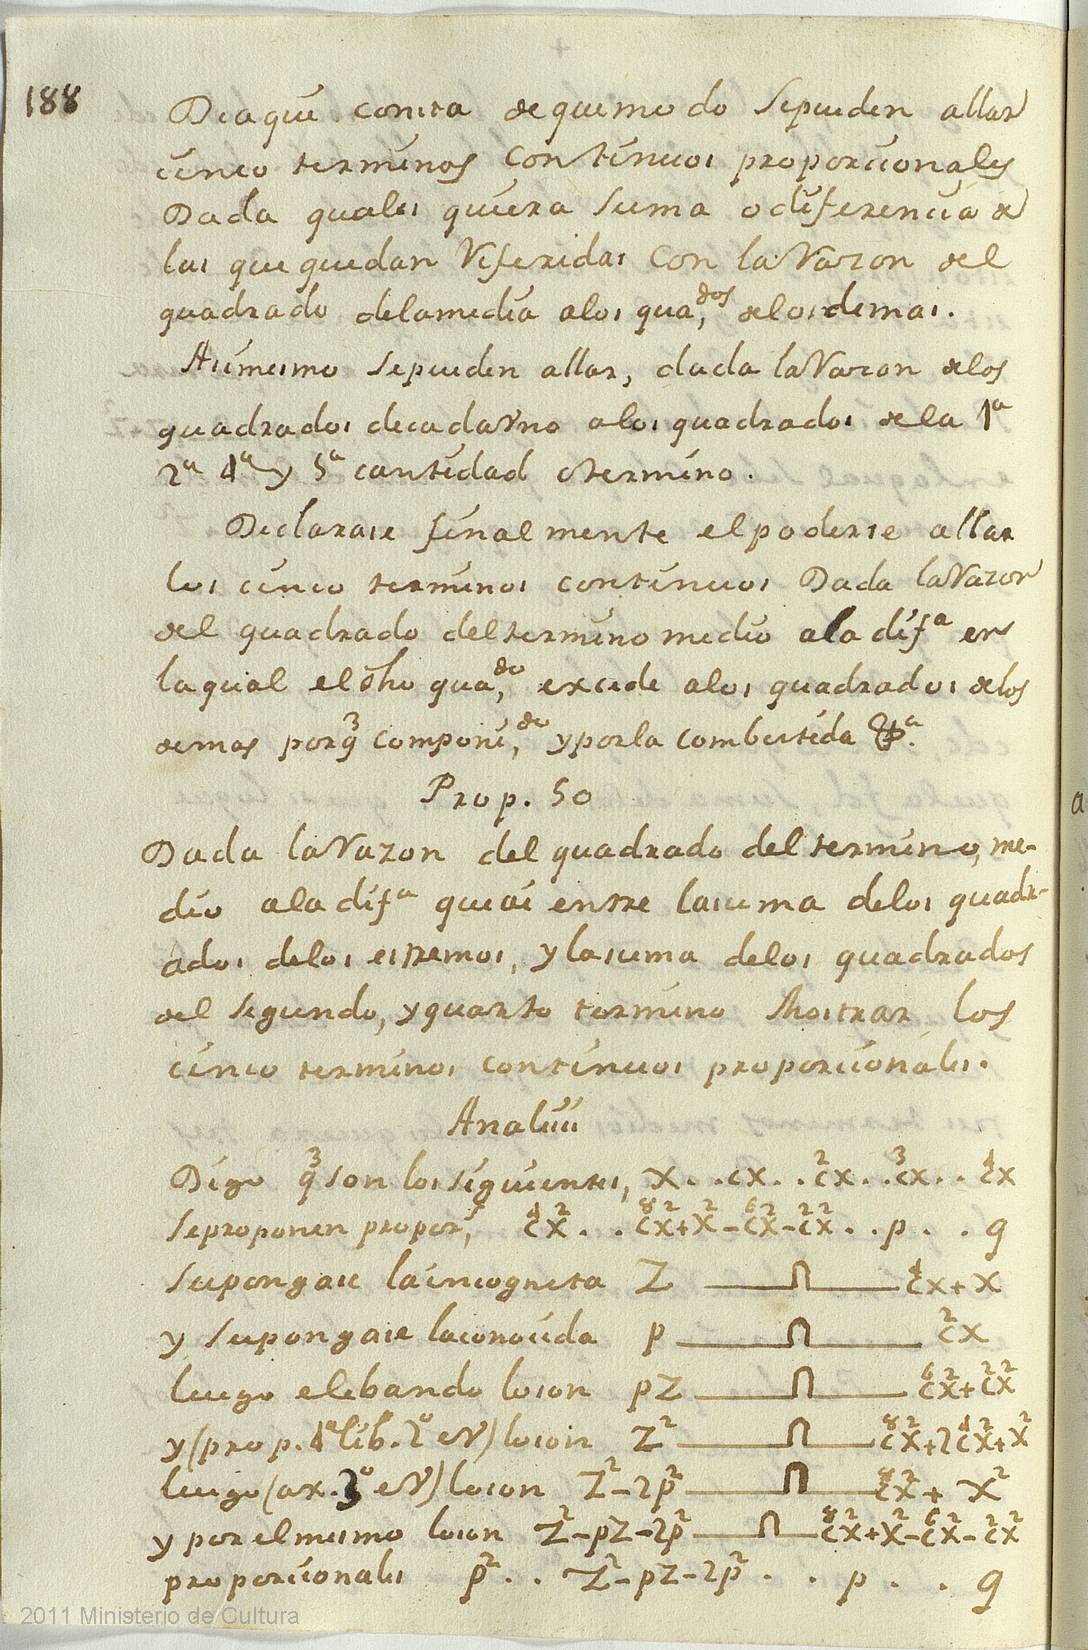 188
De aqui consta de que modo se pueden allar
cinco terminos continuos proporcionales
Dada quales quiera suma o diferencia de
las que quedan referidas con la razon del
quadrado de la media a los qua,dos de los demas.
Asimismo se pueden allar, dada la razon de los
quadrados de cada vno a los quadrados de la 1a
2a 4a y 5a cantidad o termino.
Declarase finalmente el poderse allar
los cinco terminos continuos Dada la razon
del quadrado del termino medio a la difa en
la qual el dho qua,do excede a los quadrados de los
demas por q3 componi,do y por la combertida
Prop. 50
Dada la razon del quadrado del termino, me-
dio a la difa que ai entre la suma de los quadr-
ados de los estremos, y la suma de los quadrados
del segundo, y quarto termino Mostrar los
cinco terminos continuos proporcionales.
Analisis
Digo q3 son los siguientes, x . . cx . . c²x . . c³x . . c⁴x
se proponen propor,s c⁴x² . . c⁸x²+x²-c⁶x²-c²x² . . p . . q
supongase la incognita Z —— Ո —— c⁴x+x
y supongase la conocida p —— Ո —— c²x
luego elebando lo son pZ —— Ո —— c⁶x²+c²x²
y (prop. 4a lib. 2o eV) lo son Z² —— Ո —— c⁸x²+2c⁴x²+x²
luego (ax. 3o eV) lo son Z²-2p² —— Ո —— c⁸x²+x²
y por el mismo lo son Z²-pZ-2p² —— Ո —— c⁸x²+x²-c⁶x²-c²x²
proporcionales p² . . Z²-pZ-2p² . . p . . q
2011 Ministerio de Cultura